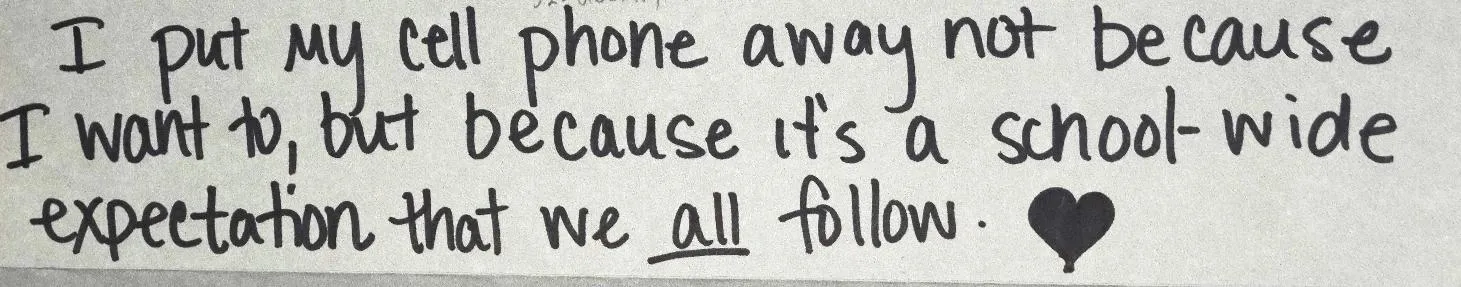 I put my cell phone away not because
I want to, but because it's a school-wide
expectation that we all follow. ♥